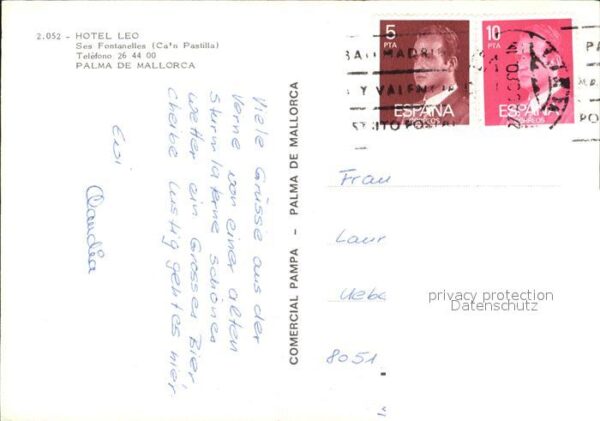 2.052 - HOTEL LEO
Ses Fontanelles (Ca'n Pastilla)
Teléfono 26 44 00
PALMA DE MALLORCA
Viele Grüsse aus der
Verne von einer alten
Sturmlaterne schönes
wetter ein Grossen Bier
cheibe lustig geht es hier.
Ewi
Claudia
COMERCIAL PAMPA - PALMA DE MALLORCA
5
PTA
ESPAÑA
CORREOS
10
PTA
ESPAÑA
CORREOS
MADRID
Y VALENCIA
Frau
Laur
Uebe
8051
privacy protection
Datenschutz